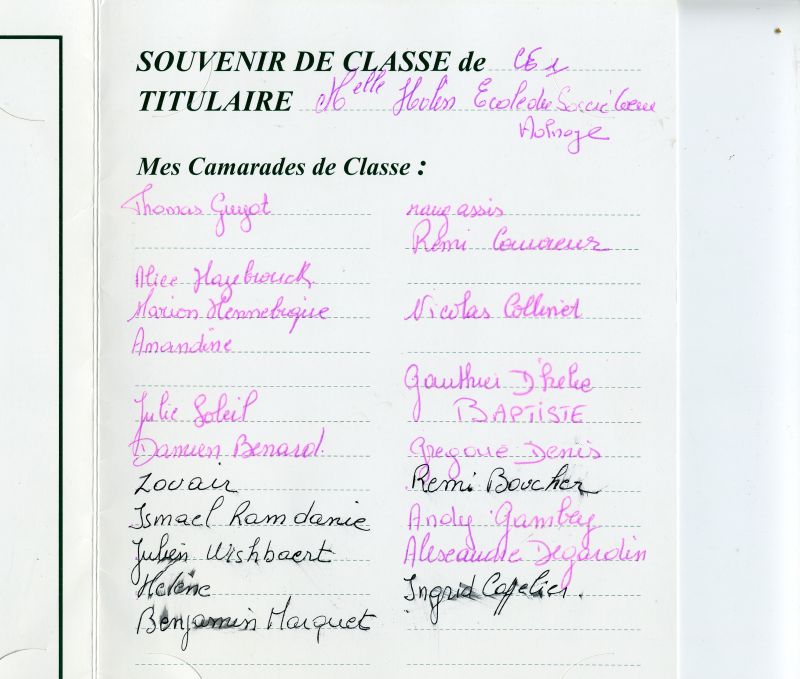 SOUVENIR DE CLASSE de CE1
TITULAIRE Melle Ecole du Sacré Coeur
Mes Camarades de Classe :
Thomas Guyot
Alice Hazebrouck
Marion Hennebique
Amandine
Julie Soleil
Damien Benard
Zouair
Ismael Ramdanie
Julien Wishbaert
Hélène
Benjamin Marquet
rang assis
Rémi Couvreur
Nicolas Collinet
Gauthier
BAPTISTE
Gregoire Denis
Remi Boucher
Andy Gambey
Alexandre Degardin
Ingrid Capelier.